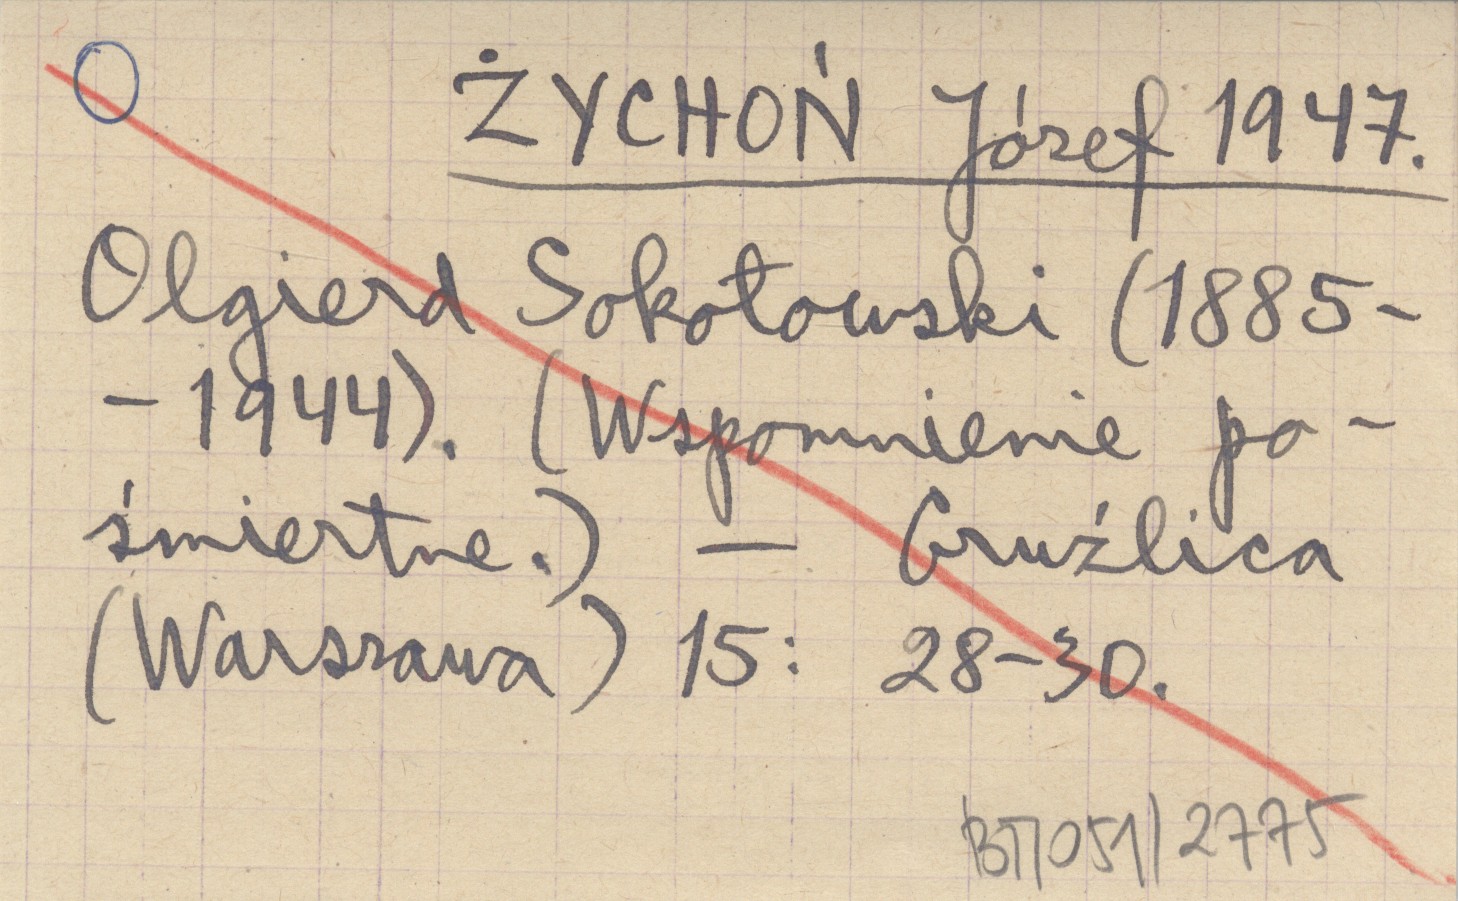 ŻYCHOŃ Józef 1947.
Olgierd Sokołowski (1885-
-1944). (Wspomnienie po-
śmiertne.) — Gruźlica
(Warszawa) 15: 28-30.
BT/051/2775